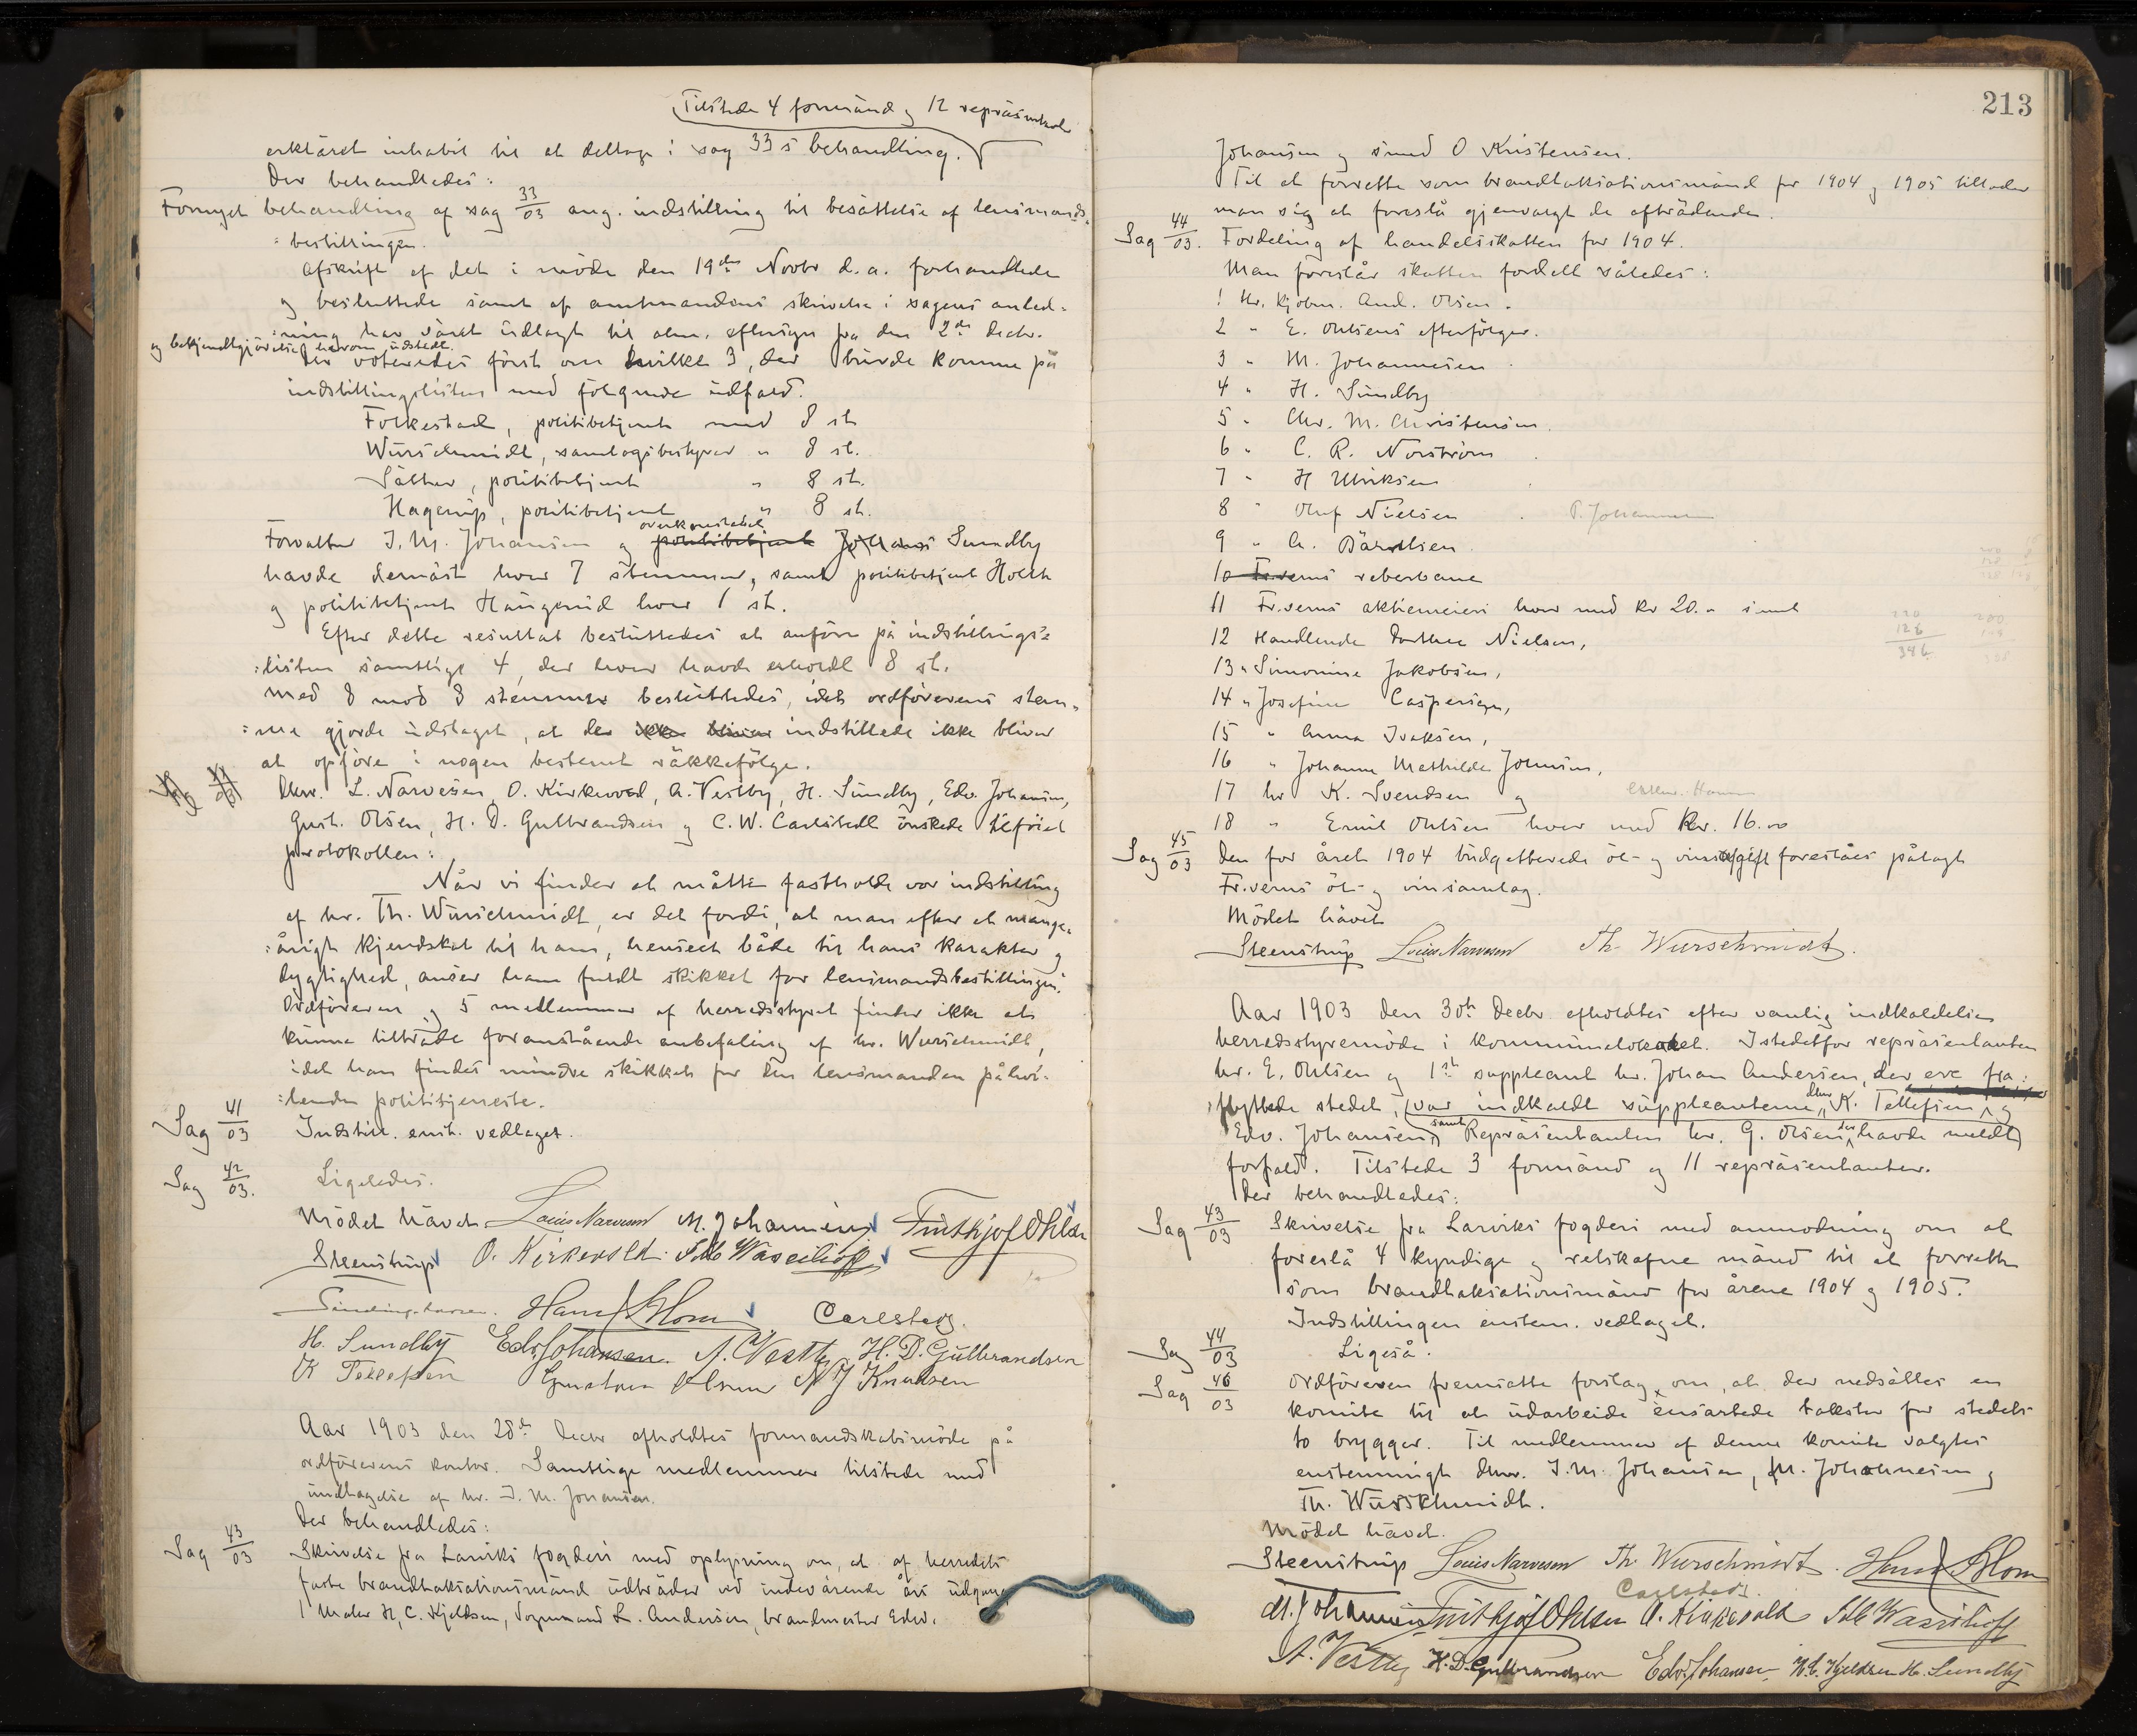 Tilstede 4 formænd og 12 repräsentanter
erklæret inhabil til at deltage i sag 33s behandling.
Der behandledes:
Fornyet behandling af sag 33/03 ang. indstilling til besättelse af lensmands-
:bestillingen.
Afskrift af det i möde den 19de Novbr d.a. forhandlede
og besluttede samt af amtmandens skrivelse i sagens anled-
:ning har väret udlagt til alm. eftersyn fra den 2den decbr.
og bekjendtgjörelse herom udstedt.
Der voteredes först om hvilke 3, der burde komme på
indstillingslisten med fölgende udfald.
Folkestad, politibetjent med 8 st.
Würschmidt, samlagsbestyrer " 8 st.
Säther, politibetjent " 8 st.
Hagerup, politibetjent " 8 st.
overkonstabel
Forvalter J. M. Johansen og politibetjent Johans Sundby
havde dernäst hver 7 stemmer, samt politibetjent Holth
og politibetjent Haugerud hver 1 st.
Efter dette resultat besluttedes at anföre på indstillings-
:listen samtlige 4, der hver havde erholdt 8 st.
Med 8 mod 8 stemmer besluttedes, idet ordförerens stem-
:me gjorde udslaget, at de ikke bliver indstillede ikke bliver
at opföre i nogen bestemt räkkefölge.
Dhrr. L. Narvesen, O. Kirkevold, A. Vestby, H. Sundby, Edv. Johansen,
Gust. Olsen, H. D. Gulbrandsen og C. W. Carlstedt önskede tilföiet
protokollen:
Når vi finder at måtte fastholde vor indstilling
af hr. Th. Würschmidt, er det fordi, at man efter et mange-
:årigt kjendskab til ham, henseet både til hans karakter og
dygtighed, anser ham fuldt skikket for lensmandsbestillingen.
Ordföreren og 5 medlemmer af herredsstyret finder ikke at
kunne tilträde foranstående anbefaling af hr. Würschmidt,
idet han findes mindre skikket for den lensmanden påhvi-
:lende polititjeneste.
Sag 41/03 Indstill. enst. vedtaget.
Sag 42/03. Ligeledes.
Mödet hävet Louis Narvesen M. Johannesen Frithjof Ohlsen
Steenstrup O. Kirkevold.
Hans Blom Carlstedt.
H. Sundby Edv. Johansen. A. Vestby H. D. Gulbrandsen
K Tellefsen Gustav Olsen A J Knudsen
Aar 1903 den 28de decbr afholdtes formandskabsmöde på
ordförerens kontor. Samtlige medlemmer tilstede med
undtagelse af hr. J. M. Johansen.
Der behandledes:
Sag 43/03 Skrivelse fra Larviks fogderi med oplysning om, at af herredets
faste brandtaksationsmänd udträder ved indeværende års udgang
Maler H. C. Kjeldsen, Sogn. L. Andersen, brandmester Edv.
213
Johansen og smed O Kristensen.
Til at forrette som brandtaksationsmänd for 1904 og 1905 tillader
man sig at foreslå gjenvalgt de afträdende.
Sag 44/03. Fordeling af handelsskatten for 1904.
Man foreslår skatten fordelt således:
1 Hr. kjöbm. And. Olsen.
2 " E. Ohlsens efterfölger.
3 " M. Johannesen
4 " H. Sundby
5 " Chr. M. Christensen.
6 " C. R. Norström
7 " H Ulriksen
8 " Oluf Nielsen P. Johannesen
9 " A. Bärulfsen
10 Fr.verns reberbane
11 Fr.verns aktiemeieri hver med kr 20.- samt
12 Handlende Dorthea Nielsen,
13 " Simonine Jakobsen,
14 " Josefine Caspersen,
15 " Anna Isaksen,
16 " Johanne Mathilde Jonsen,
17 hr K. Svendsen og
18 " Emil Ohlsen hver med kr. 16.00
Sag 45/03 Den for året 1904 budgetterede öl- og vinafgift foreslåes pålagt
Fr.verns öl- og vinsamlag.
Mödet hävet
Steenstrup Louis Narvesen Th. Würschmidt.
Aar 1903 den 30te Decbr afholdtes efter vanlig indkaldelse
herredsstyremöde i kommunelokalet. Istedetfor repräsentanten
hr. E. Ohlsen og 1ste suppleant hr. Johan Andersen, der ere fra-
:flyttede stedet, var indkaldt suppleanterne dhrr K. Tellefsen og
Edv. Johansen samt Repräsentanten hr. G. Olsen der havde meldt
forfald. Tilstede 3 formänd og 11 repräsentanter.
Der behandledes:
Sag 43/03 Skrivelse fra Larviks fogderi med anmodning om at
foreslå 4 kyndige og retskafne mänd til at forrette
som brandtaksationsmänd for årene 1904 og 1905.
Indstillingen enstem. vedtaget.
Sag 44/03 Ligeså.
Sag 46/03 Ordföreren fremsatte forslag om, at der nedsättes en
komite til at udarbeide ensartede takster for stedets
to brygger. Til medlemmer af denne komite valgtes
enstemmigt dhrr. J. M. Johansen, M. Johannesen og
Th. Würschmidt.
Mödet hävet.
Steenstrup Louis Narvesen Th Würschmidt. Hans Blom
Carlstedt.
M. Johannesen Frithjof Ohlsen O. Kirkevold
A. Vestby H. D. Gulbrandsen Edv. Johansen H. C. Kjeldsen H. Sundby